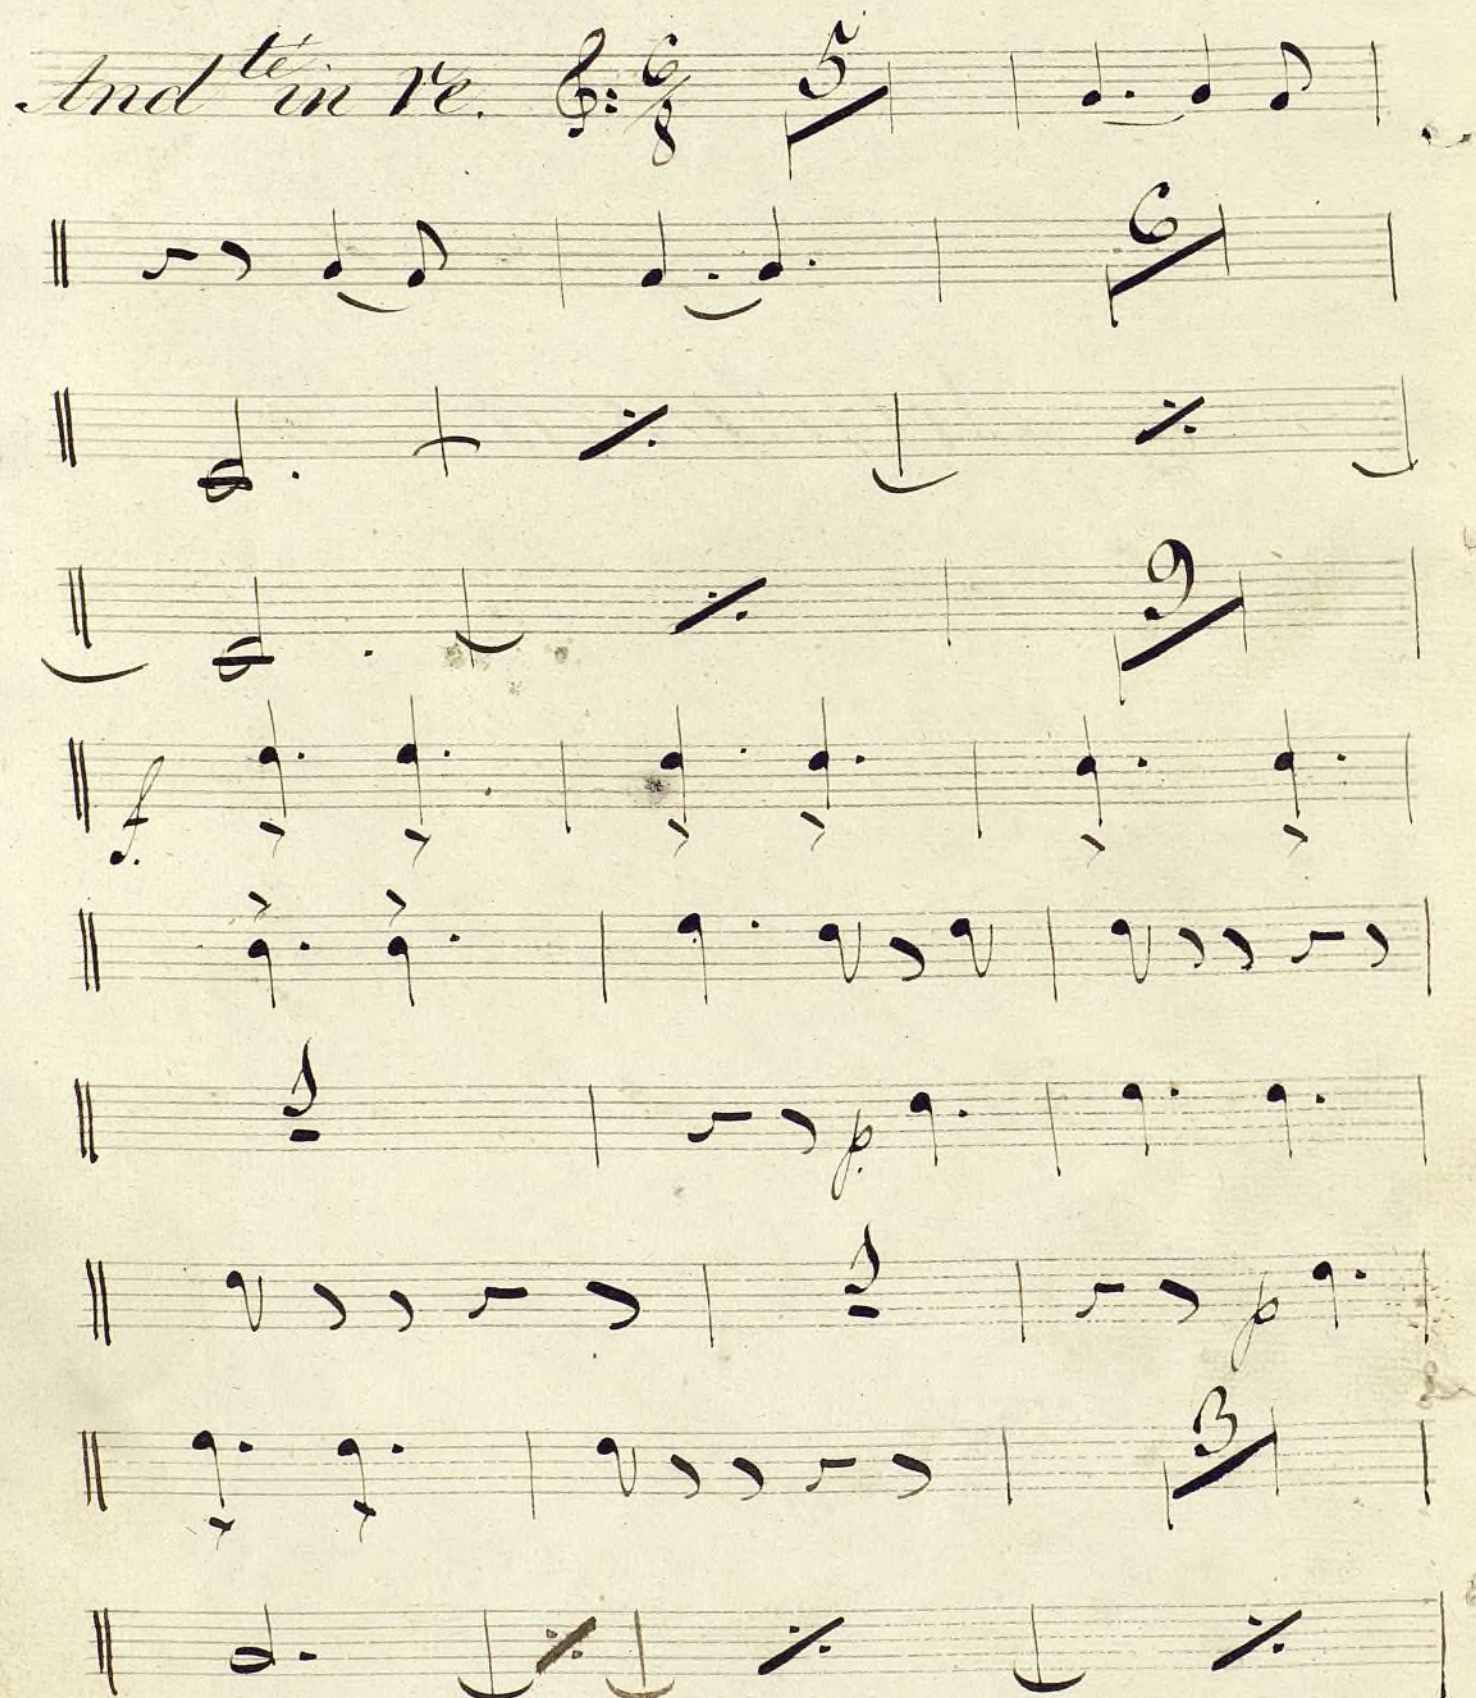 And.te in re. 6/8 5
6
9
f.
1
p.
1 p
3